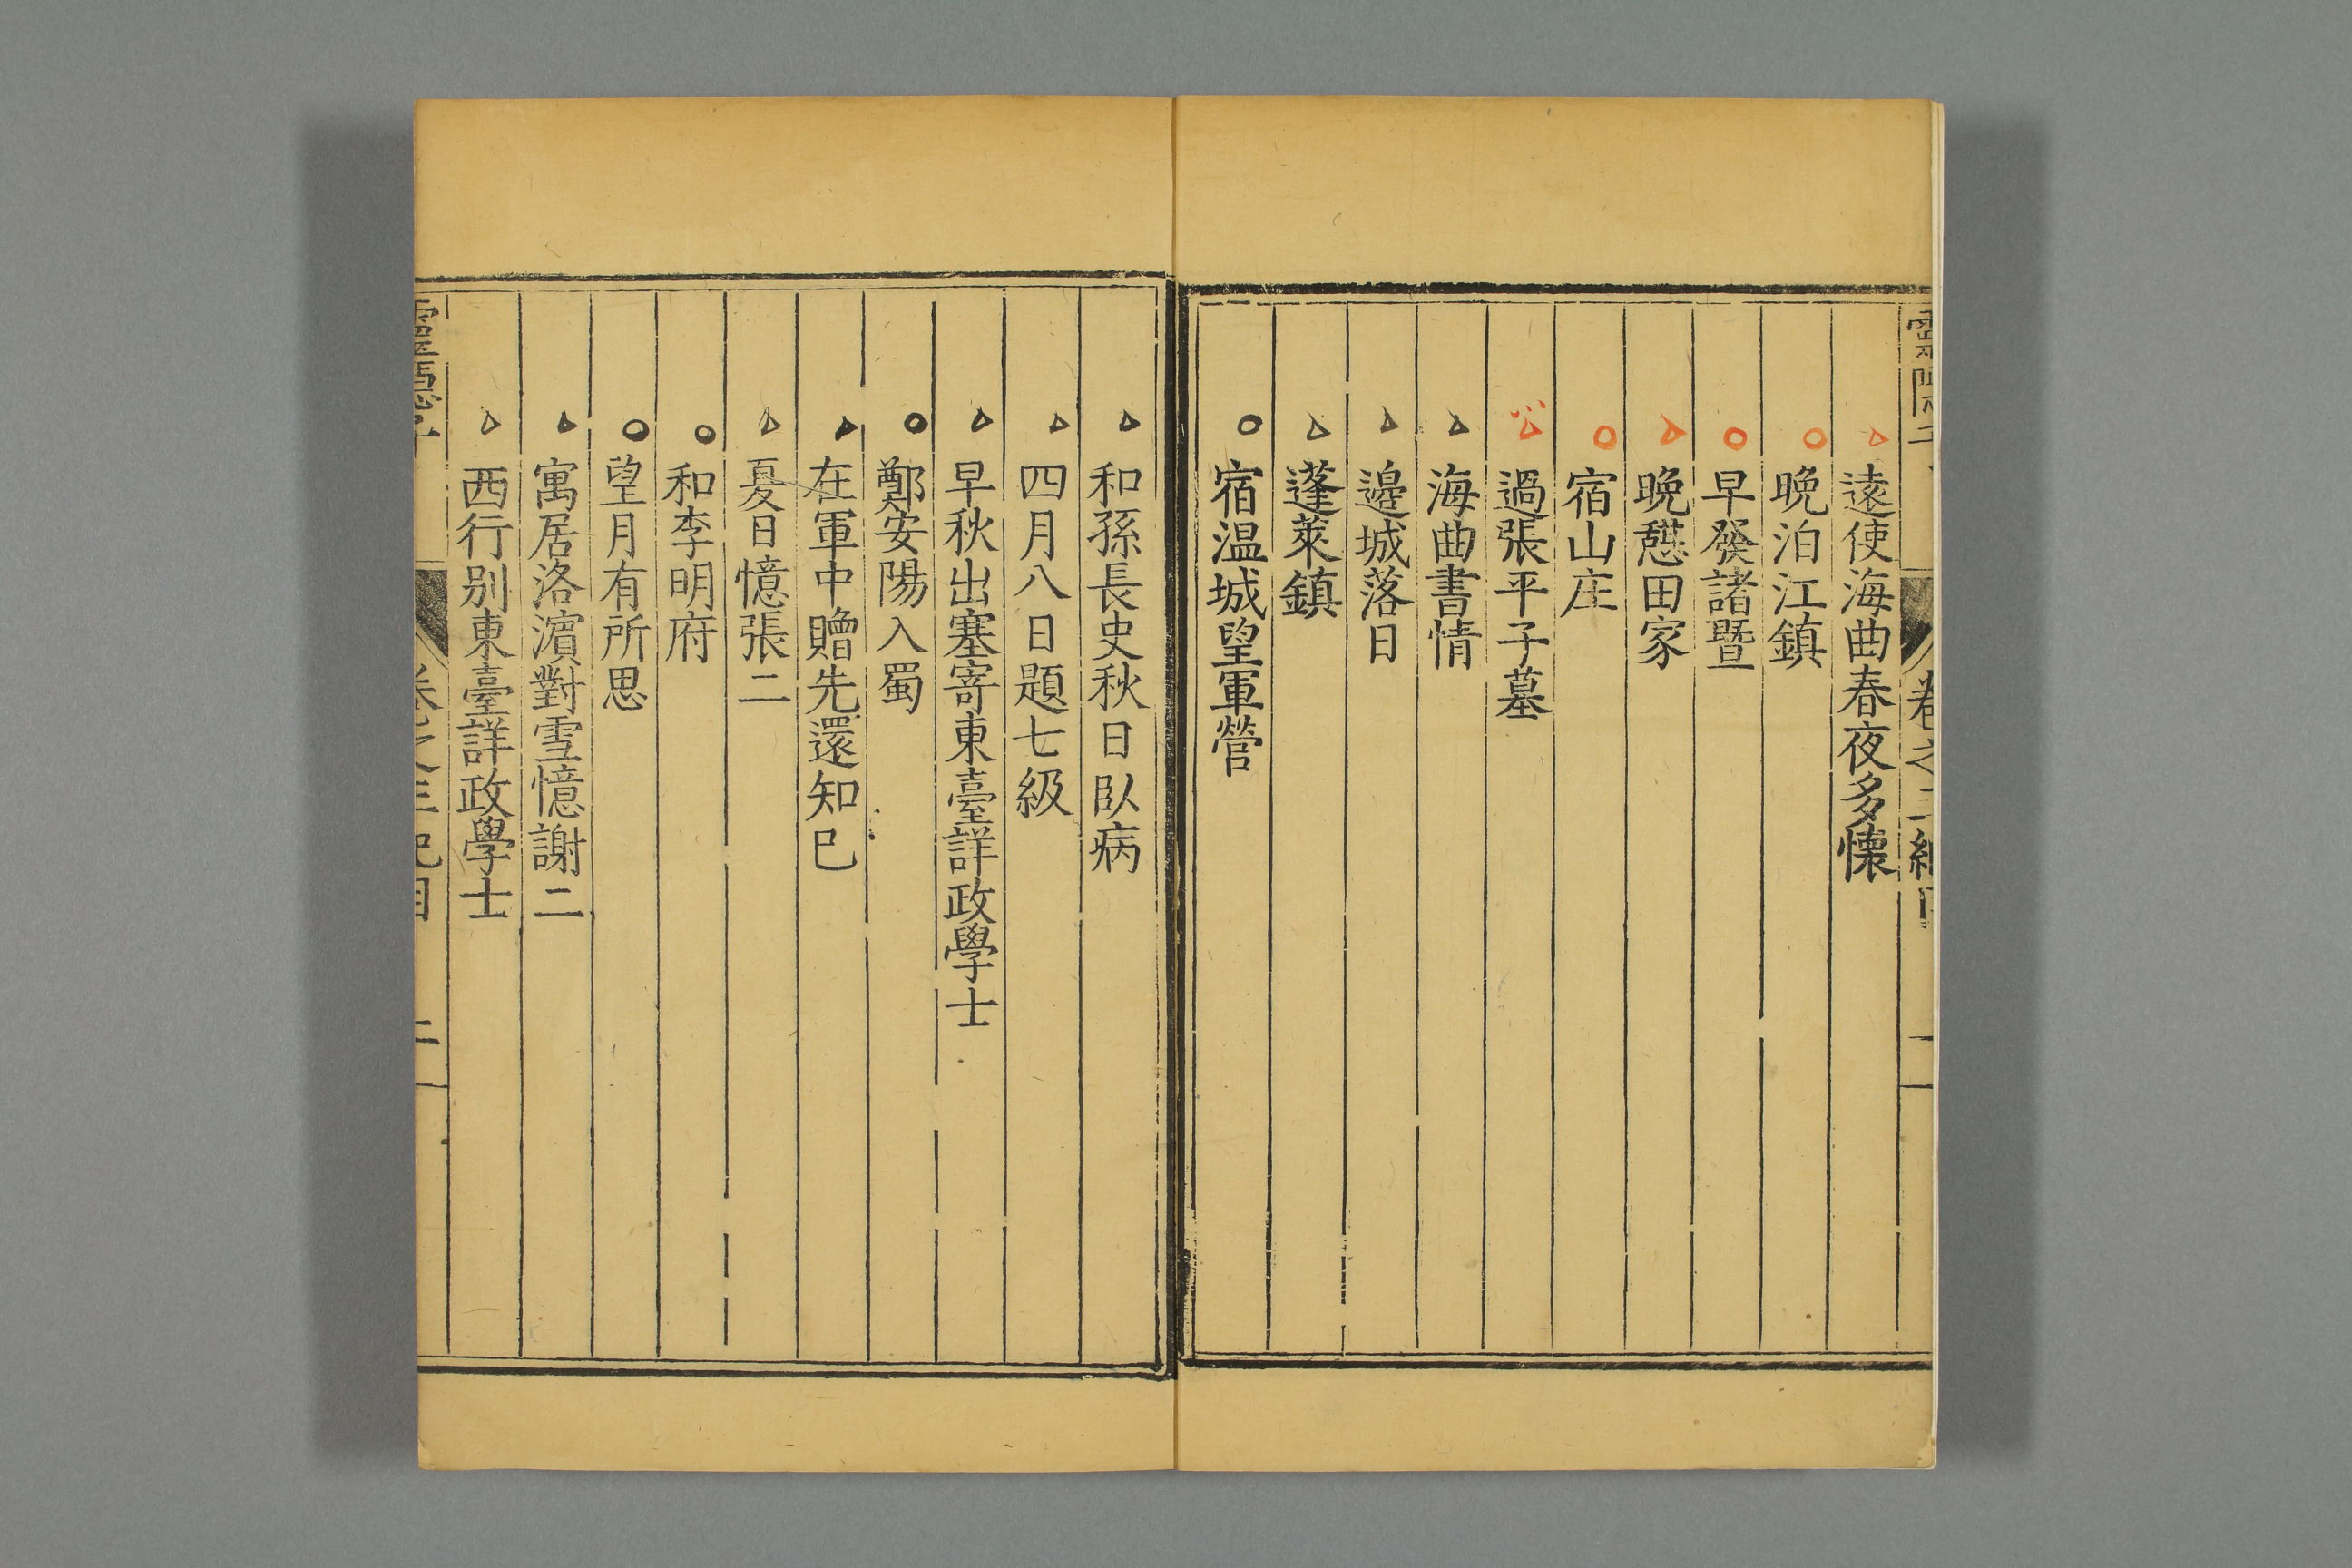 遠使海曲春夜多懐
晩泊江鎮
早發諸暨
晩憇田家
宿山庄
過張平子墓
海曲書情
邉城落日
蓬萊鎮
宿温城望軍營
和孫長史秋日臥病
四月八日題七級
早秋出塞寄東臺詳政學士
鄭安陽入蜀
在軍中贈先還知己
夏日憶張二
和李明府
望月有所思
寓居洛濵對雪憶謝二
西行别東臺詳政學士